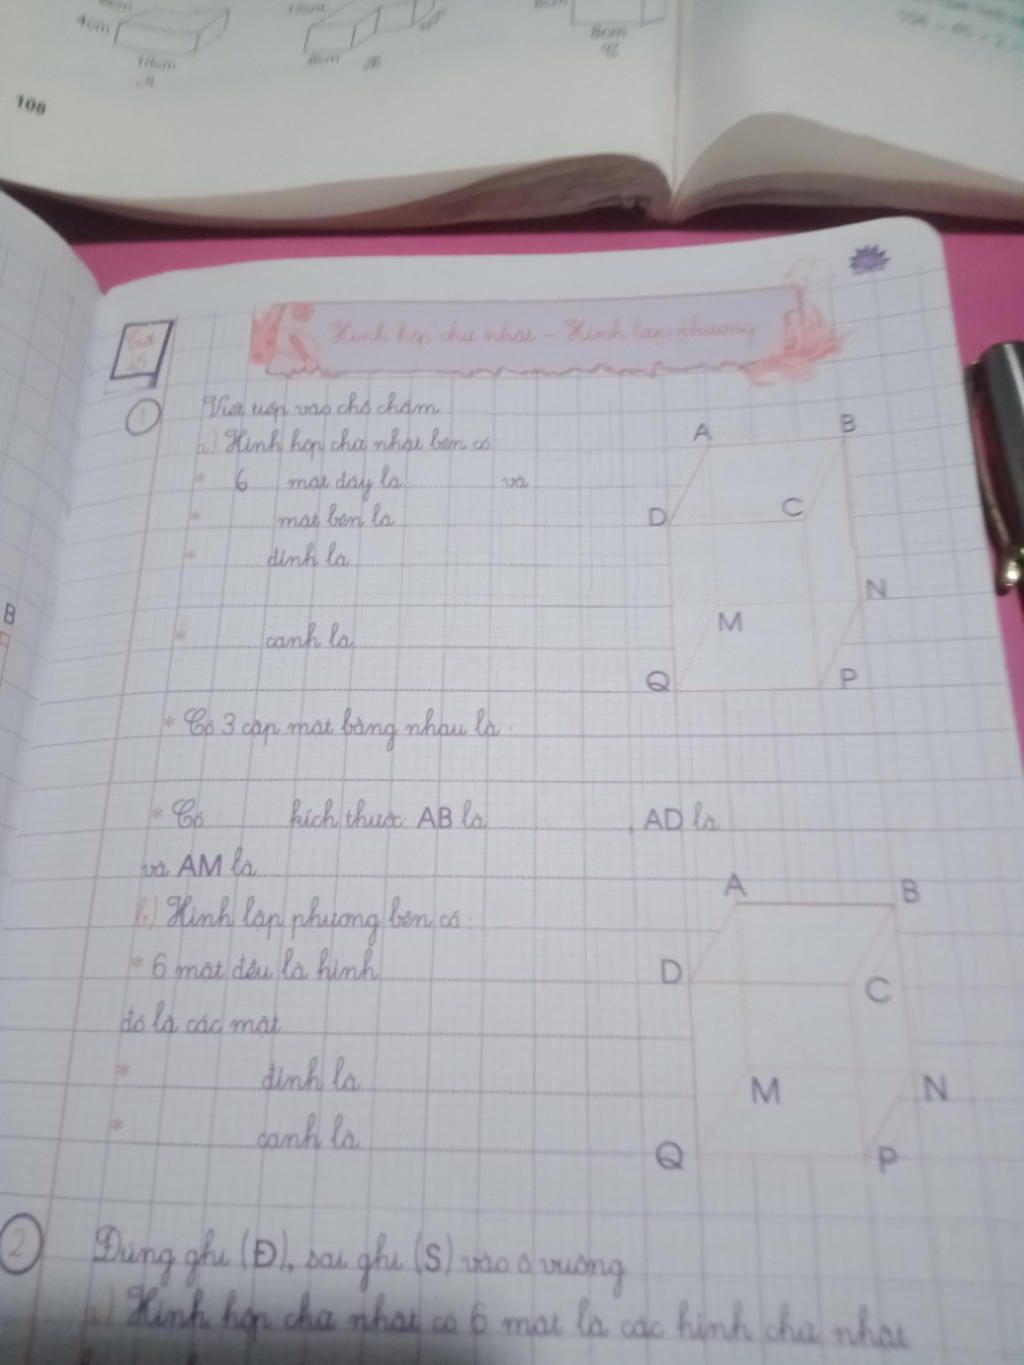 4cm
10cm
8cm
8cm
108
Hình hộp chữ nhật - Hình lập phương
1
Viết tiếp vào chỗ chấm
a) Hình hộp chữ nhật bên có
* 6 mặt đáy là và
* mặt bên là
* đỉnh là
* cạnh là
* Có 3 cặp mặt bằng nhau là
* Có kích thước AB là , AD là
và AM là
A B
D C
M N
Q P
b) Hình lập phương bên có
* 6 mặt đều là hình
đó là các mặt
* đỉnh là
* cạnh là
A B
D C
M N
Q P
B
2
Đúng ghi (Đ), sai ghi (S) vào ô vuông
a) Hình hộp chữ nhật có 6 mặt là các hình chữ nhật